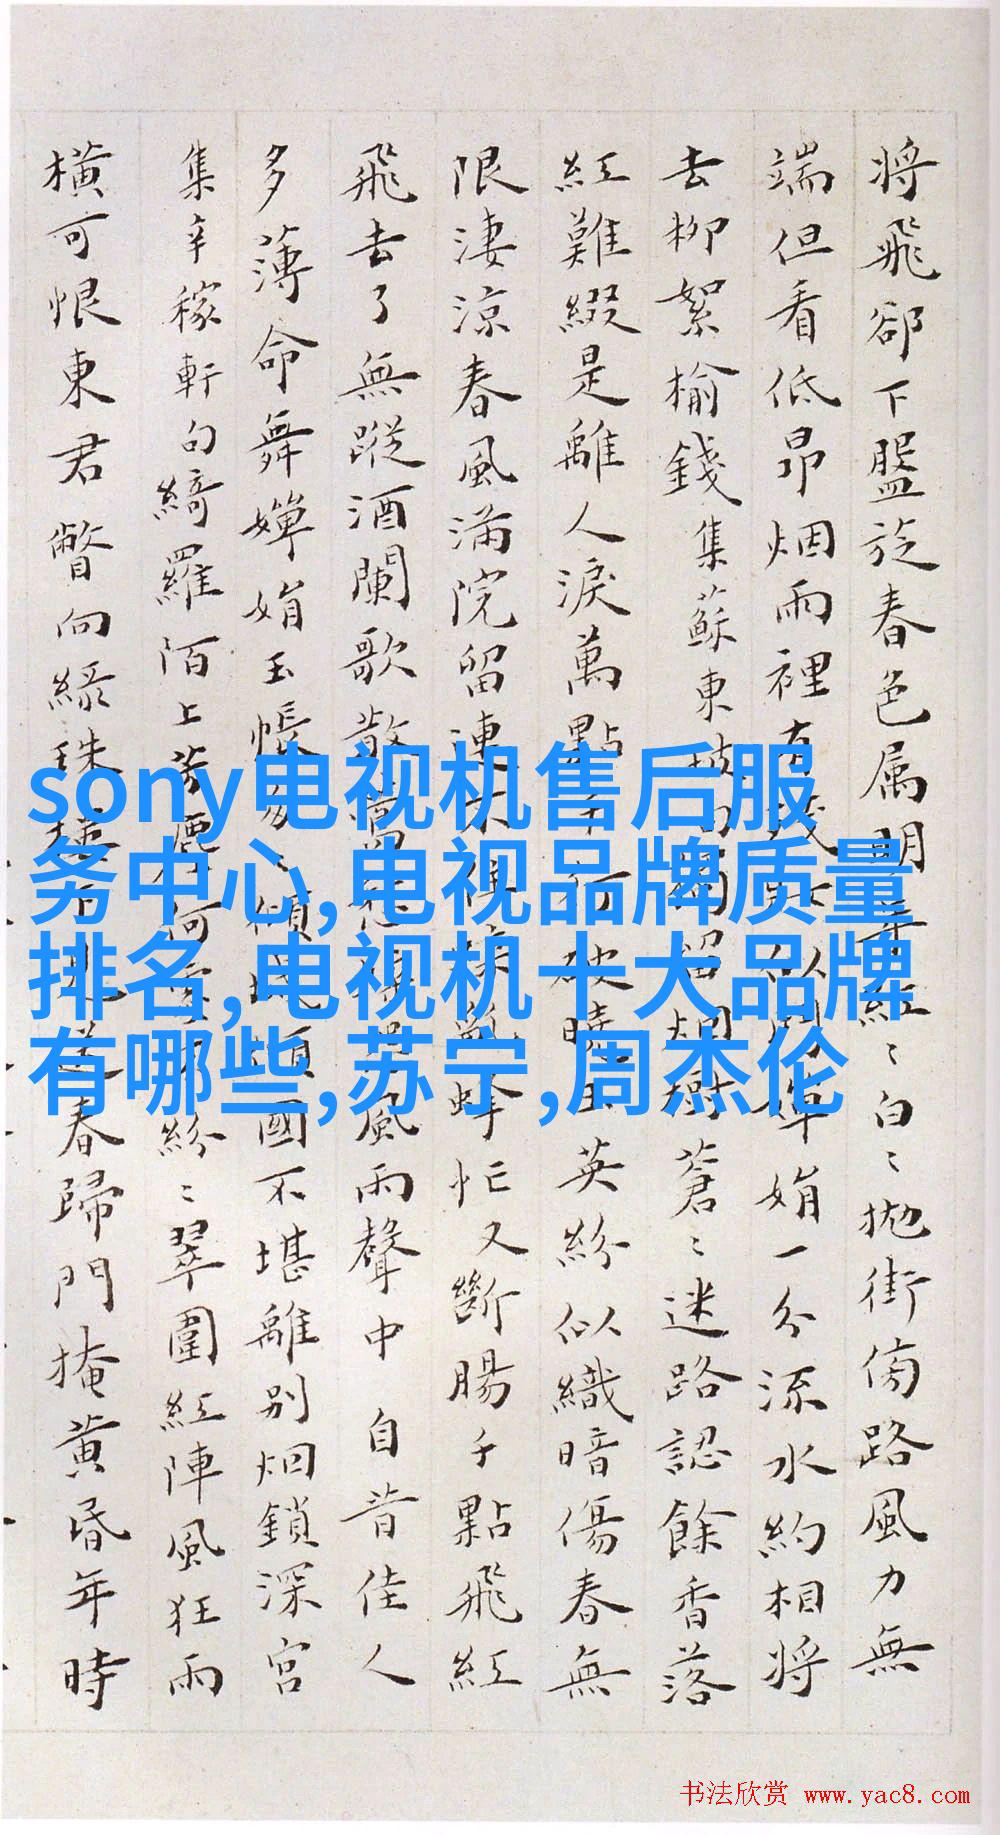 将飛卻下盤旋春色属明年紅〻白〻拋街傍路風力無
端但看低昂烟雨裡有娟一分流水約相將
去柳絮榆錢集蘇東坡句烟樹蒼〻迷路認餘香落
紅難綴是離人淚萬點千行破曉玉英紛似織暗傷春無
限淒涼春風滿院留連不蜂忙又斷腸千點飛紅
飛去了無蹤酒闌歌散風雨聲中 自昔佳人
多薄命舞嬋娟玉帳匆〻傾城傾國不堪離別烟鎖深宮
集辛稼軒句綺羅陌上芳塵何紛〻翠圍紅陣風狂雨
橫可恨東君瞥向綠珠樓下送春歸門掩黃昏年時
sony电视机售后服
务中心,电视品牌质量
排名,电视机十大品牌
有哪些,苏宁,周杰伦
书法欣赏 www.yac8.com